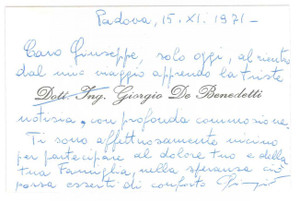 Padova, 15.XI.1971 -
Caro Giuseppe, solo oggi, al rientro
dal mio viaggio apprendo la triste
Dott. Ing. Giorgio De Benedetti
notizia, con profonda commozione.
Ti sono affettuosamente vicino
per partecipare al dolore tuo e della
tua Famiglia, nella speranza ciò
possa esserti di conforto Giorgio